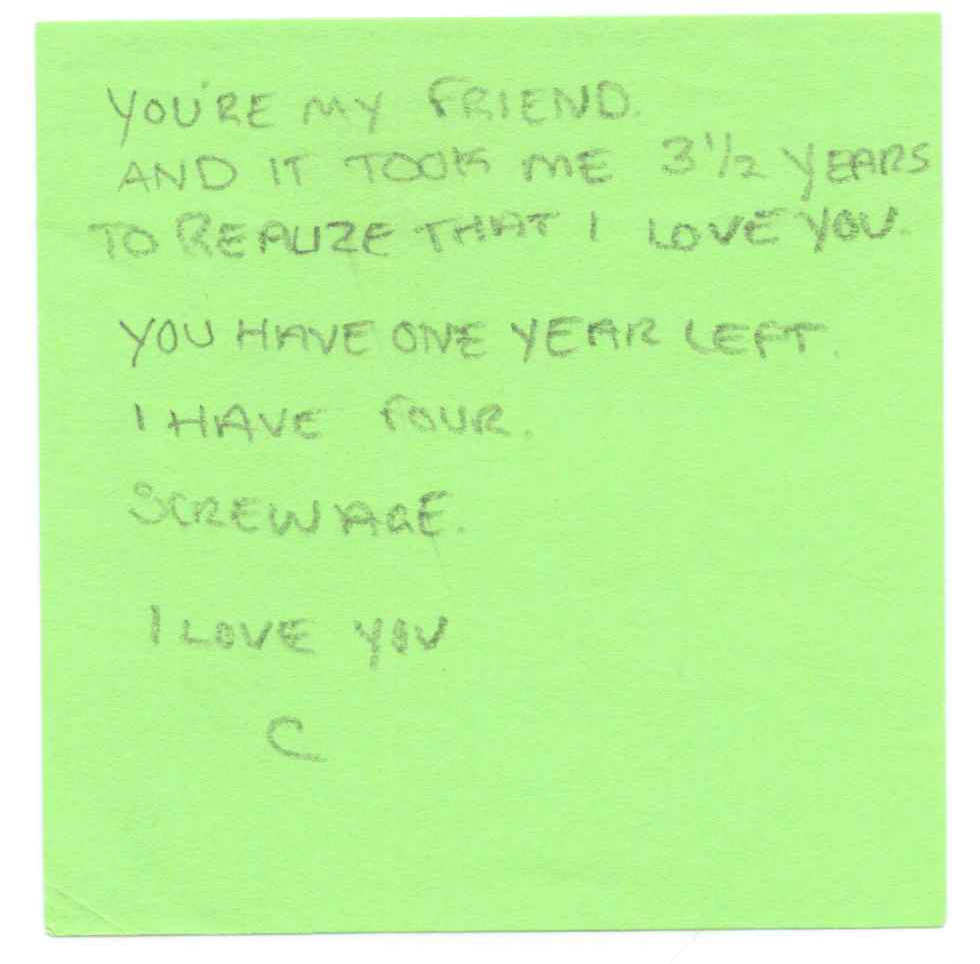 YOU'RE MY FRIEND.
AND IT TOOK ME 3 1/2 YEARS
TO REALIZE THAT I LOVE YOU.
YOU HAVE ONE YEAR LEFT.
I HAVE FOUR.
SCREW AGE.
I LOVE YOU
C